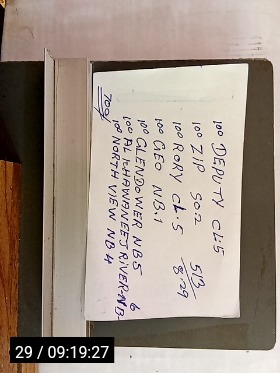 100 DEPUTY CL:5
100 ZIP SO2 5/3
100 RORY CL.5 8:29
100 GEO NB.1
100 GLENDOWER NB5
100 ALKHAWANEEJ RIVER-NB 6
100 NORTH VIEW NB 4
700/
29 / 09:19:27